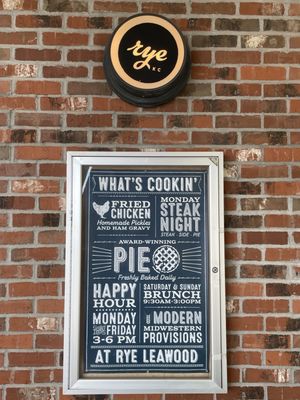 rye
KC
WHAT'S COOKIN'
FRIED
CHICKEN
Homemade Pickles
AND HAM GRAVY
MONDAY
STEAK
NIGHT
STEAK · SIDE · PIE
AWARD-WINNING
PIE
Freshly Baked Daily
HAPPY
HOUR
MONDAY
THRU FRIDAY
3-6 PM
SATURDAY & SUNDAY
BRUNCH
9:30AM-3:00PM
MODERN
MIDWESTERN
PROVISIONS
AT RYE LEAWOOD